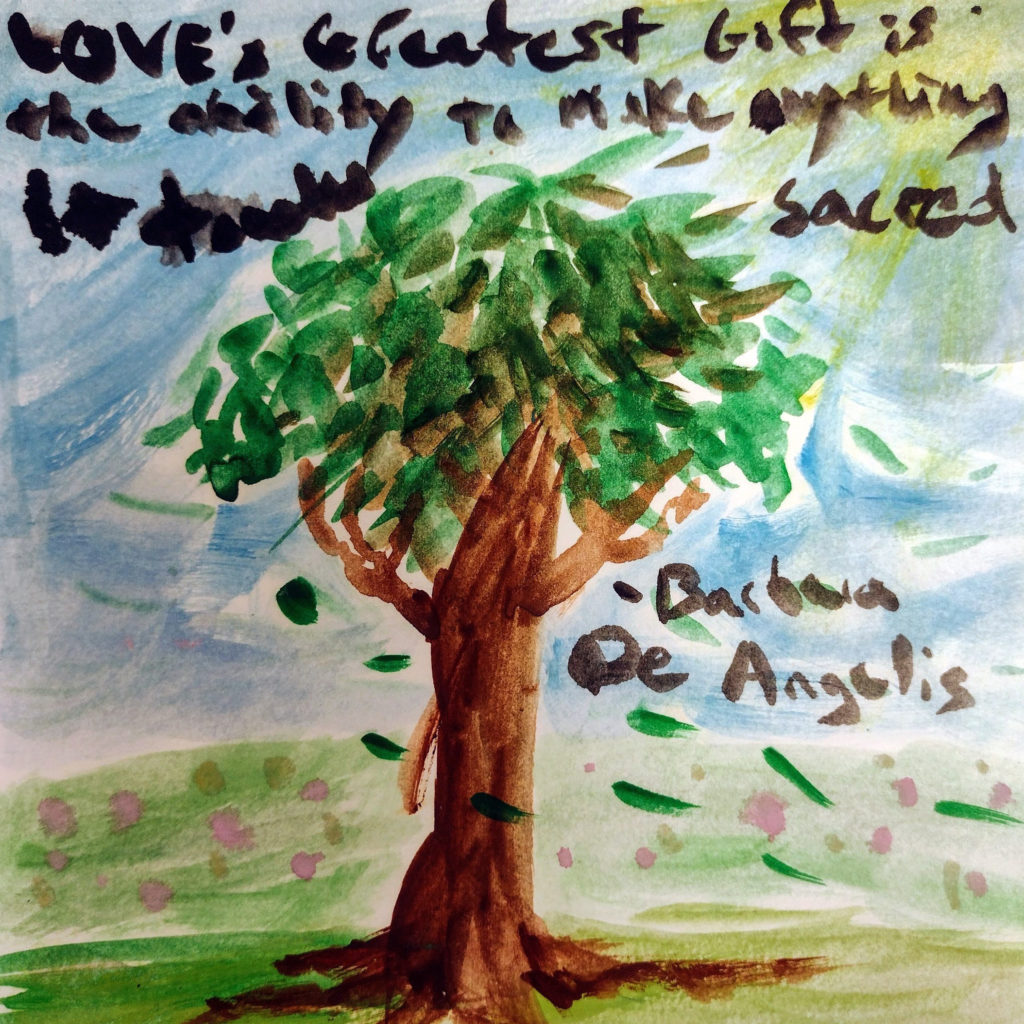 LOVE's Greatest Gift is
the ability to make anything
it touches sacred
- Barbara
De Angelis